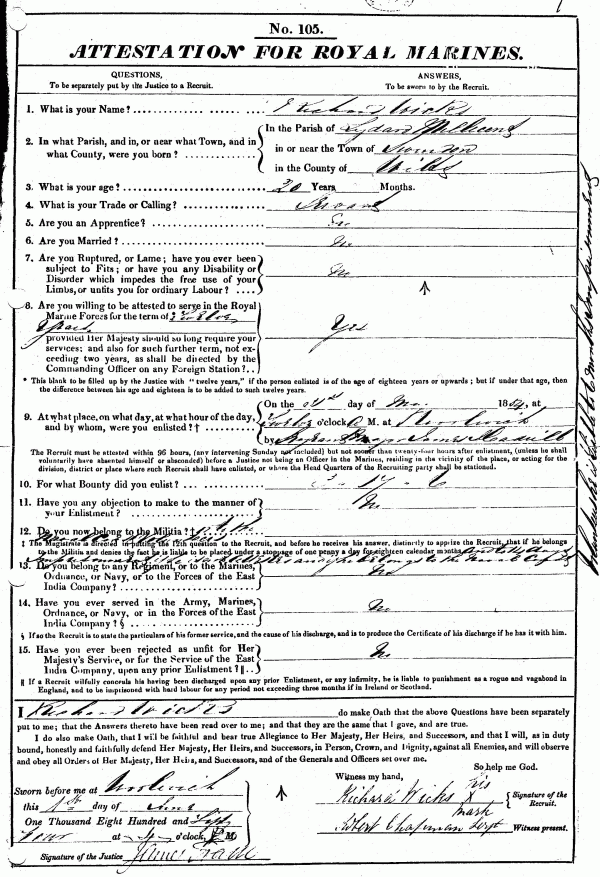 No. 105.
ATTESTATION FOR ROYAL MARINES.
QUESTIONS, ANSWERS,
To be separately put by the Justice to a Recruit. To be sworn to by the Recruit.
1. What is your Name?
2. In what Parish, and in, or near what Town, and in what County, were you born? In the Parish of Lydiard
in or near the Town of
in the County of Wilts
3. What is your age? 20 Years Months.
4. What is your Trade or Calling?
5. Are you an Apprentice? No
6. Are you Married? No
7. Are you Ruptured, or Lame; have you ever been
subject to Fits; or have you any Disability or
Disorder which impedes the free use of your
Limbs, or unfits you for ordinary Labour? No
8. Are you willing to be attested to serve in the Royal
Marine Forces for the term of * Twelve
Years
provided Her Majesty should so long require your
services: and also for such further term, not ex-
ceeding two years, as shall be directed by the
Commanding Officer on any Foreign Station? Yes
* This blank to be filled up by the Justice with "twelve years," if the person enlisted is of the age of eighteen years or upwards; but if under that age, then
the difference between his age and eighteen is to be added to such twelve years.
9. At what place, on what day, at what hour of the day,
and by whom, were you enlisted? †
On the day of 1854, at
o'clock M. at Woolwich
by
The Recruit must be attested within 96 hours, (any intervening Sunday not included) but not sooner than twenty-four hours after enlistment, (unless he shall
voluntarily have absented himself or absconded) before a Justice not being an Officer in the Marines, residing in the vicinity of the place, or acting for the
division, district or place where such Recruit shall have enlisted, or where the Head Quarters of the Recruiting party shall be stationed.
10. For what Bounty did you enlist?
11. Have you any objection to make to the manner of
your Enlistment? No
12. Do you now belong to the Militia? ‡
‡ The Magistrate is directed in putting the 12th question to the Recruit, and before he receives his answer, distinctly to apprize the Recruit, that if he belongs
to the Militia and denies the fact he is liable to be placed under a stoppage of one penny a day for eighteen calendar months
13. Do you belong to any Regiment, or to the Marines,
Ordnance, or Navy, or to the Forces of the East
India Company? No
14. Have you ever served in the Army, Marines,
Ordnance, or Navy, or in the Forces of the East
India Company? § No
§ If so the Recruit is to state the particulars of his former service, and the cause of his discharge, and is to produce the Certificate of his discharge if he has it with him.
15. Have you ever been rejected as unfit for Her
Majesty's Service, or for the Service of the East
India Company, upon any prior Enlistment? || No
|| If a Recruit wilfully conceals his having been discharged upon any prior Enlistment, or any infirmity, he is liable to punishment as a rogue and vagabond in
England, and to be imprisoned with hard labour for any period not exceeding three months if in Ireland or Scotland.
I Richard Wicks do make Oath that the above Questions have been separately
put to me; that the Answers thereto have been read over to me; and that they are the same that I gave, and are true.
I do also make Oath, that I will be faithful and bear true Allegiance to Her Majesty, Her Heirs, and Successors, and that I will, as in duty
bound, honestly and faithfully defend Her Majesty, Her Heirs, and Successors, in Person, Crown, and Dignity, against all Enemies, and will observe
and obey all Orders of Her Majesty, Her Heirs, and Successors, and of the Generals and Officers set over me.
So help me God.
Sworn before me at Woolwich
this 1st day of June
One Thousand Eight Hundred and Fifty
Four at o'clock, P M.
Signature of the Justice James
Witness my hand,
Richard Wicks his X mark Signature of the Recruit.
Robert Chapman Sergt Witness present.